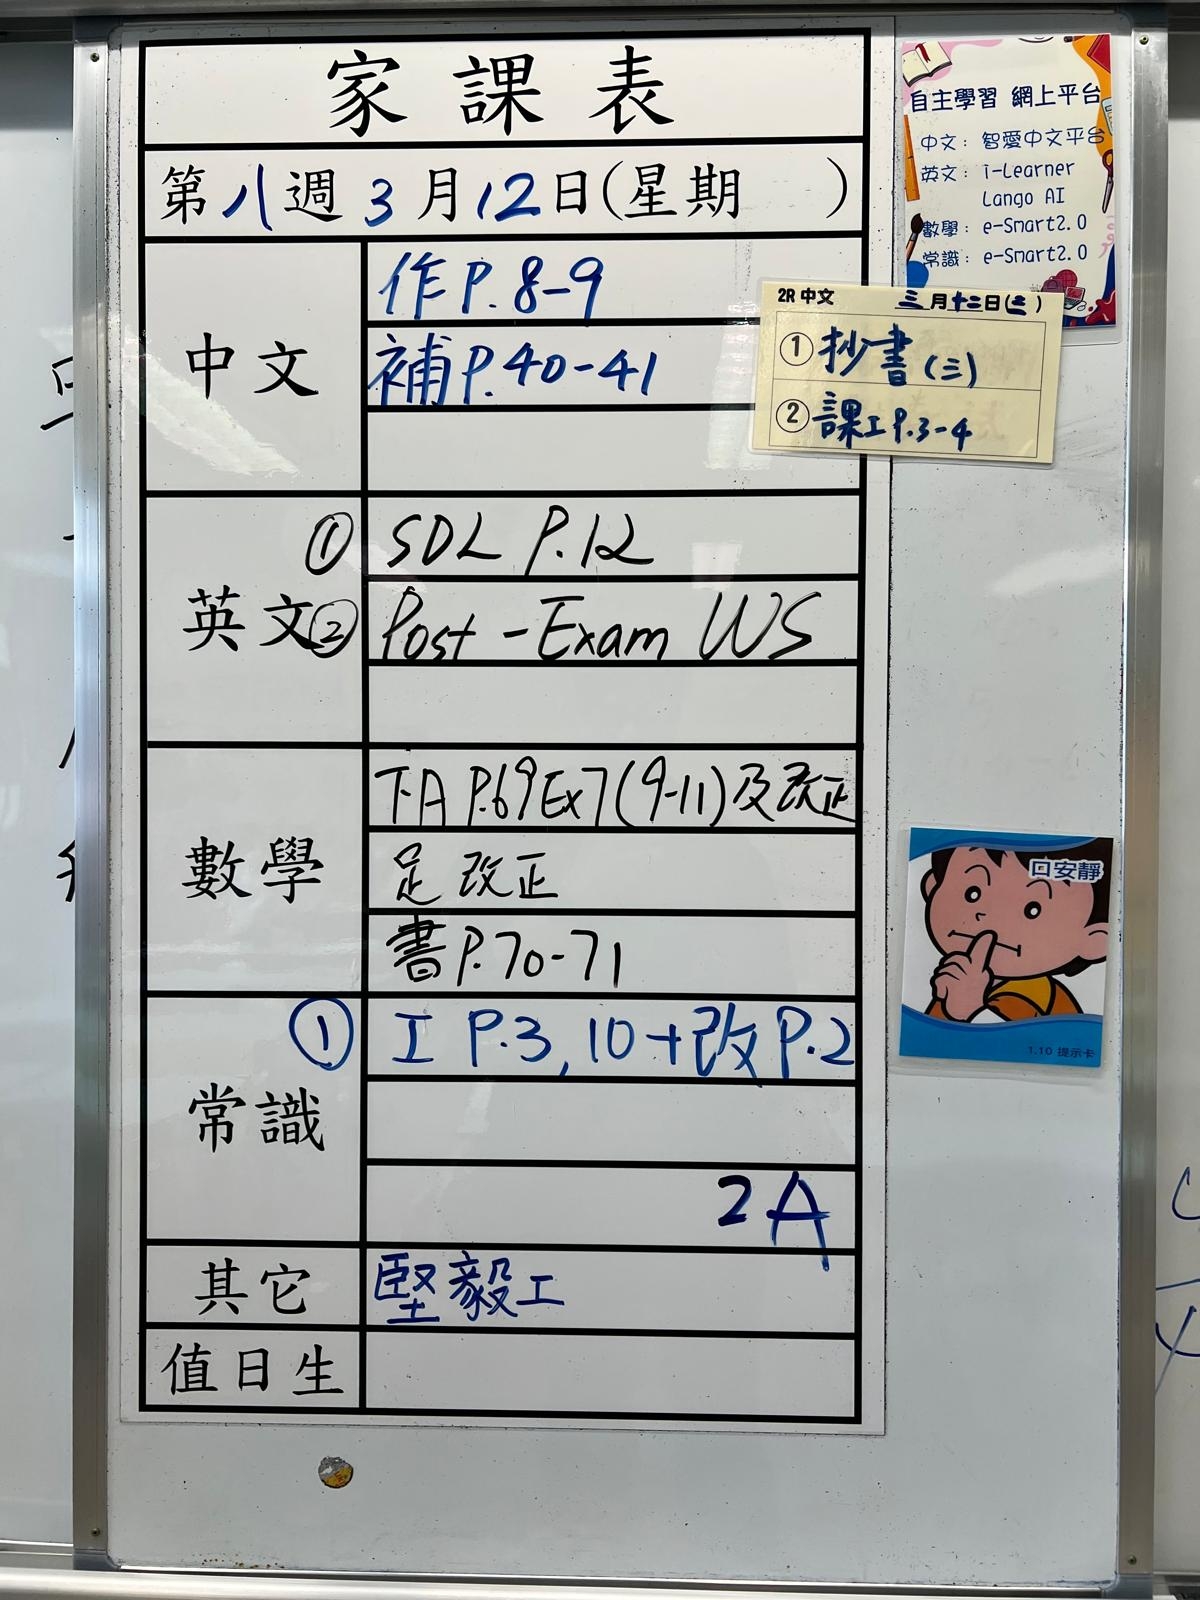 家課表
第八週3月12日(星期 )
中文
作P.8-9
補P.40-41
英文
① SDL P.12
② Post-Exam WS
數學
下A P.69 Ex7(9-11)及改正
足改正
書P.70-71
常識
① 工 P.3,10+改P.2
2A
其它
堅毅工
值日生
自主學習 網上平台
中文：智愛中文平台
英文：i-Learner
Lango AI
數學：e-Smart2.0
常識：e-Smart2.0
2R 中文 三月十二日(三)
① 抄書(三)
② 課工P.3-4
口安靜
1.10 提示卡